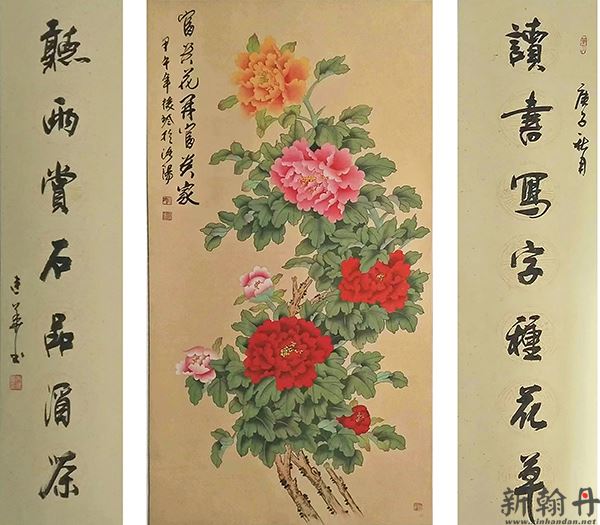 讀書寫字種花草
庚子秋月
富貴花開富貴家
甲午年於洛陽
聽雨賞石品酒茶
華书
新翰丹
www.xinhandan.net